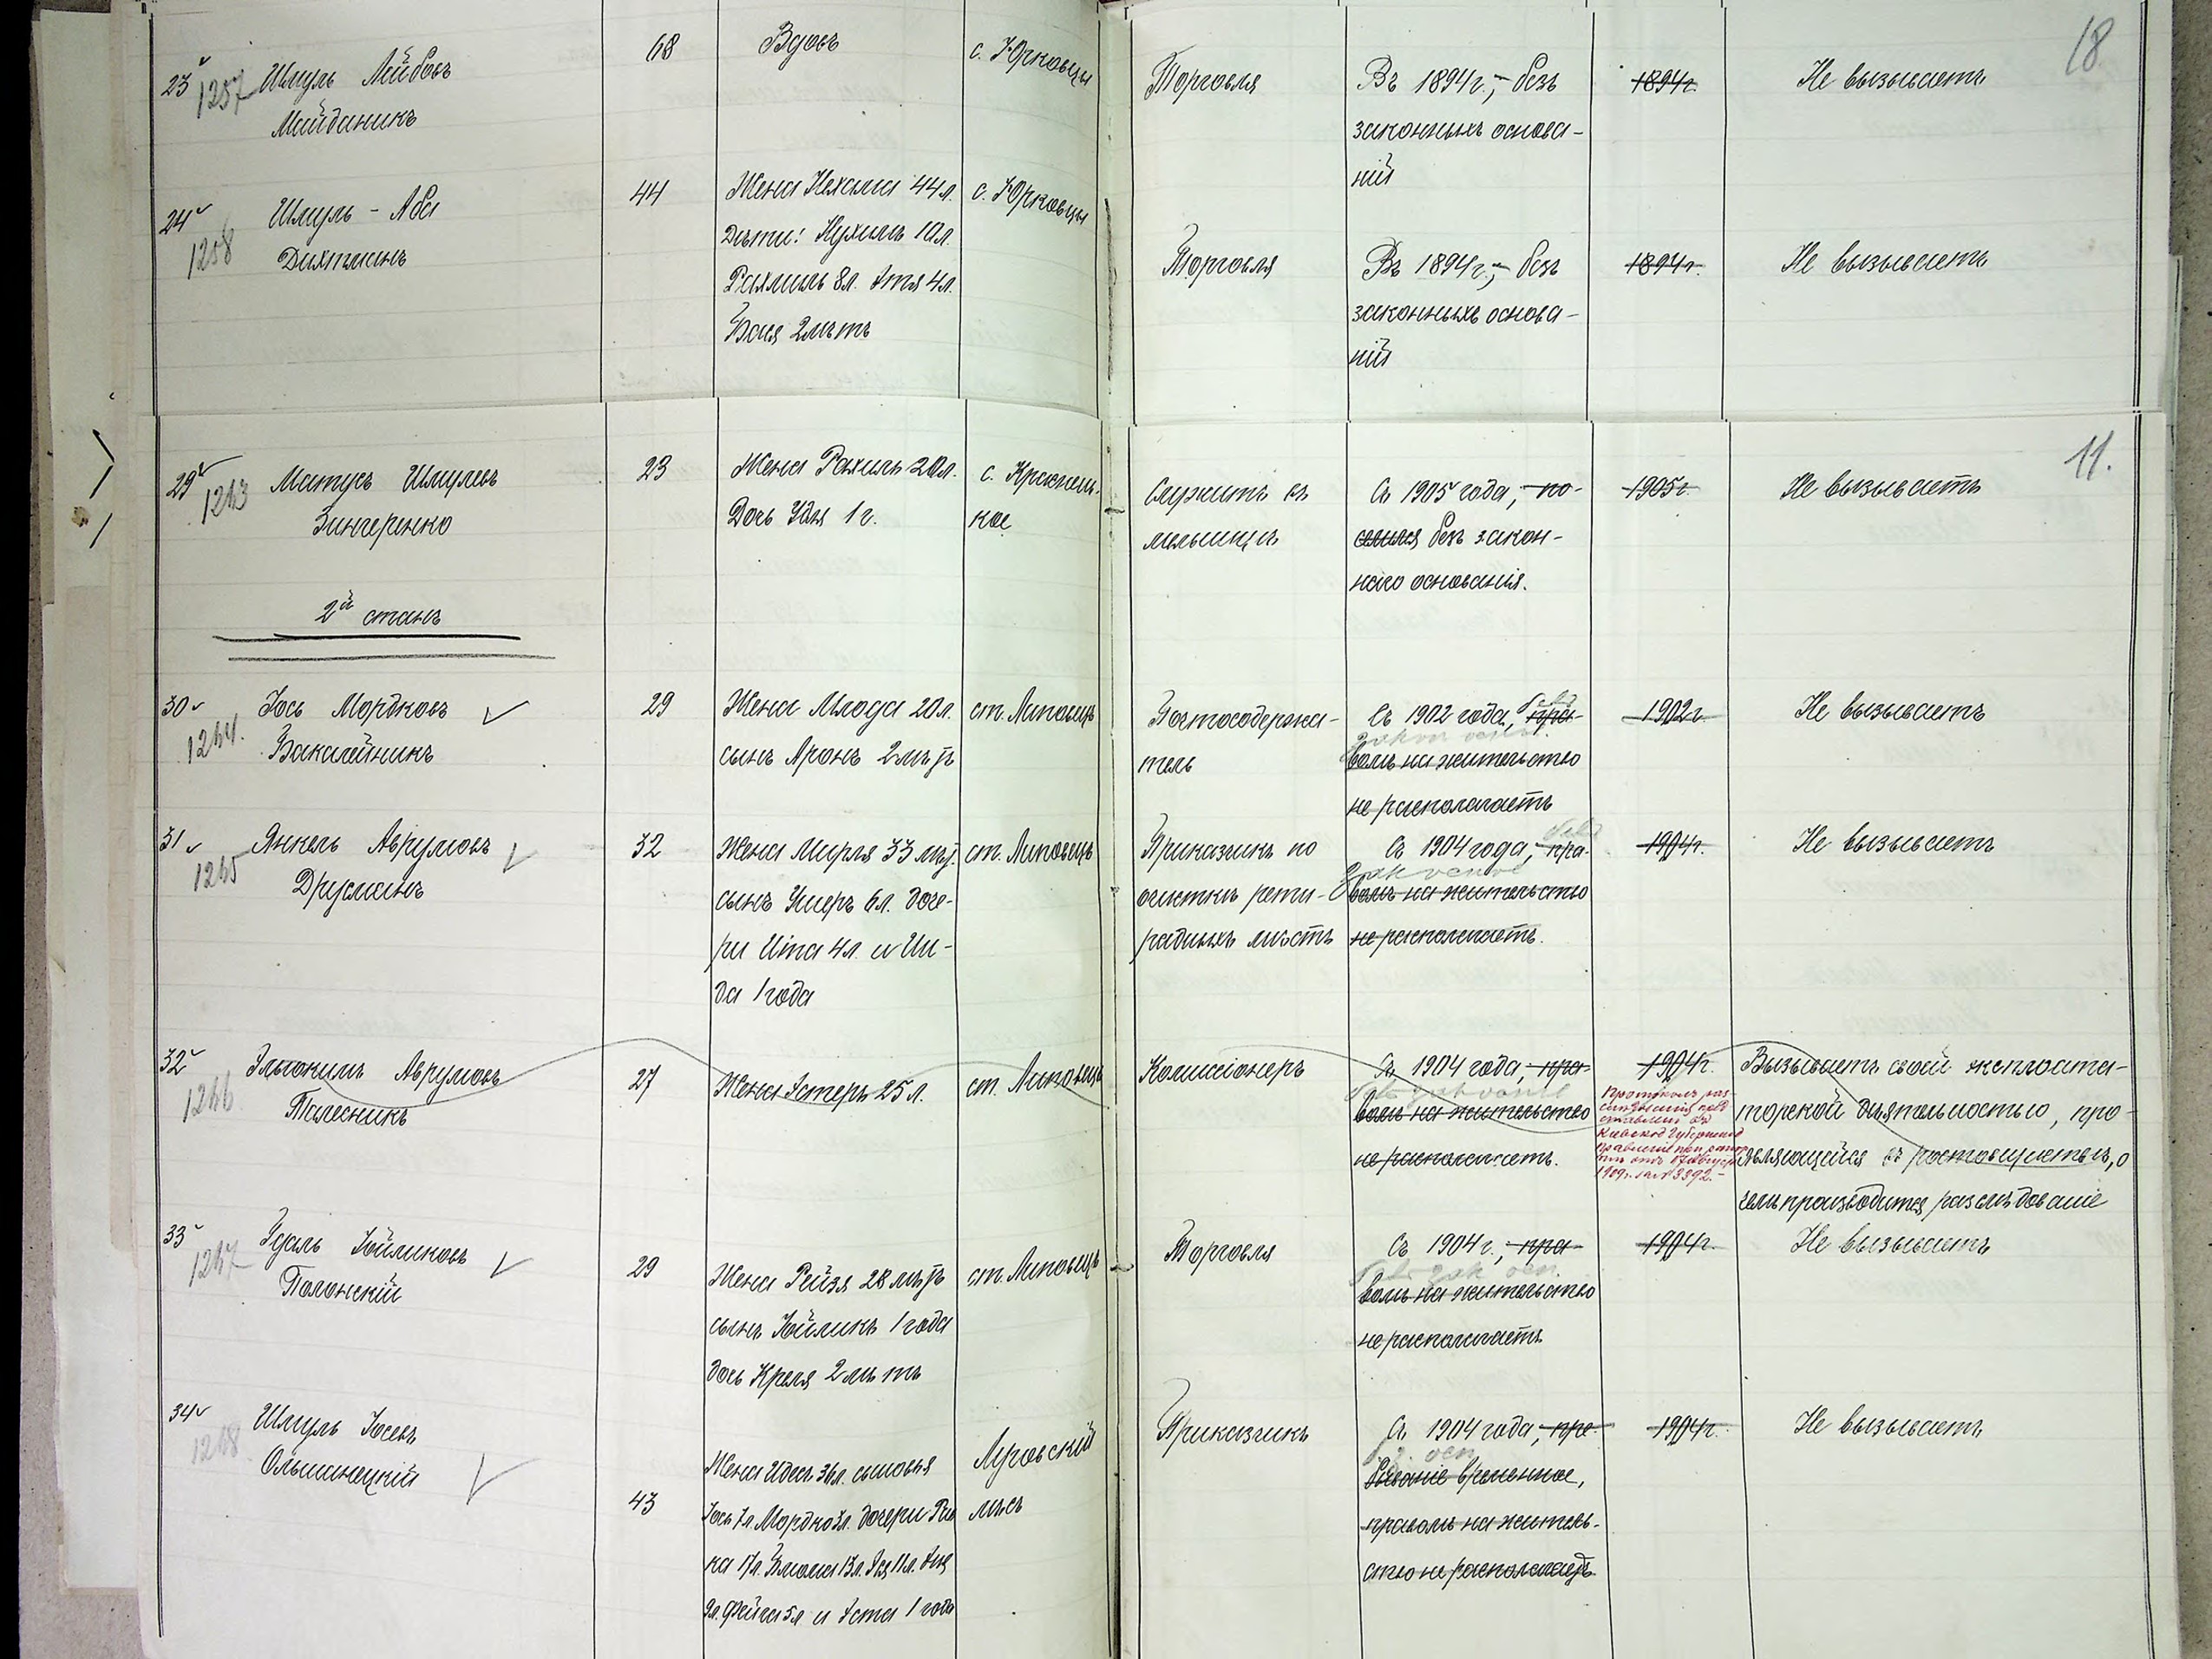 18
23 1257 Шмуль Лейбовъ
Майданикъ
68
Вдовъ
с. Юрковцы
Торговля
Въ 1894 г., – безъ
законныхъ основа-
ній
1894 г.
Не вызываетъ
24 1258 Шмуль - Аба
Дихтманъ
44
Жена Нехама 44 л.
Дѣти: Нухимъ 10 л.
Рахмиль 8 л. Этя 4 л.
Бася 2 лѣтъ
с. Юрковцы
Торговля
Въ 1894 г., – безъ
законныхъ основа-
ній
1894 г.
Не вызываетъ
11.
29 1263 Матусъ Шмулевъ
Зингеренко
23
Жена Рахиль 20 л.
Дочь Удя 1 г.
с.
кое
Служитъ въ
мельницѣ
Съ 1905 года, – по-
селился безъ закон-
наго основанія.
1905 г.
Не вызываетъ
2й станъ
30 1264. Іось Мордковъ
Бакалейникъ
29
Жена Млода 20 л.
сынъ Аронъ 2 лѣтъ
ст. Липовецъ
Почтосодержа-
тель
Съ 1902 года, пра- безъ
закон осн.
вомъ на жительство
не располагаетъ
1902 г.
Не вызываетъ
31 1265 Янкель Аврумовъ
Друманъ
32
Жена Мирля 33 лѣт.
сынъ Ушеръ 6 л. доче-
ри Ита 4 л. и Ши-
да 1 года
ст. Липовецъ
Приказчикъ по
очисткѣ рети-
радныхъ мѣстъ
Съ 1904 года, – пра- безъ
зак основ
вомъ на жительство
не располагаетъ.
1904 г.
Не вызываетъ
32 1266 Эльокимъ Аврумовъ
Талесникъ
27
Жена Эстеръ 25 л.
ст. Липовецъ
Комиссіонеръ
Съ 1904 года, – пра-
безъ зак основ
вомъ на жительство
не располагаетъ.
1904 г.
Протоколъ раз-
слѣдованія пред
ставленъ въ
Кіевское Губернское
Правленіе при рапор-
тѣ отъ 17 августа
1909 г. за № 3392. –
Вызываетъ своей эксплоата-
торской дѣятельностью, про-
являющейся въ ростовщичествѣ, о
чемъ производится разслѣдованіе
33 1267 Удаль Іойликовъ
Полонскій
29
Жена Рейзя 28 лѣтъ
сынъ Іойликъ 1 года
дочь Креля 2 лѣтъ
ст. Липовецъ
Торговля
Съ 1904 г., – пра-
безъ зак осн.
вомъ на жительство
не располагаетъ
1904 г.
Не вызываетъ
34 1268 Шмуль Іосевъ
Ольшанецкій
43
Жена Идесъ 36 л. сыновья
Іось 7 л. Мордко 3 л. дочери Рив
ка 17 л. 13 л. 11 л.
9 л. Фейга 5 л. и Эста 1 года
Луговскій
лѣсъ
Приказчикъ
Съ 1904 года, – пре-
б. з. осн
бываніе временное,
правомъ на житель-
ство не располагаетъ
1904 г.
Не вызываетъ